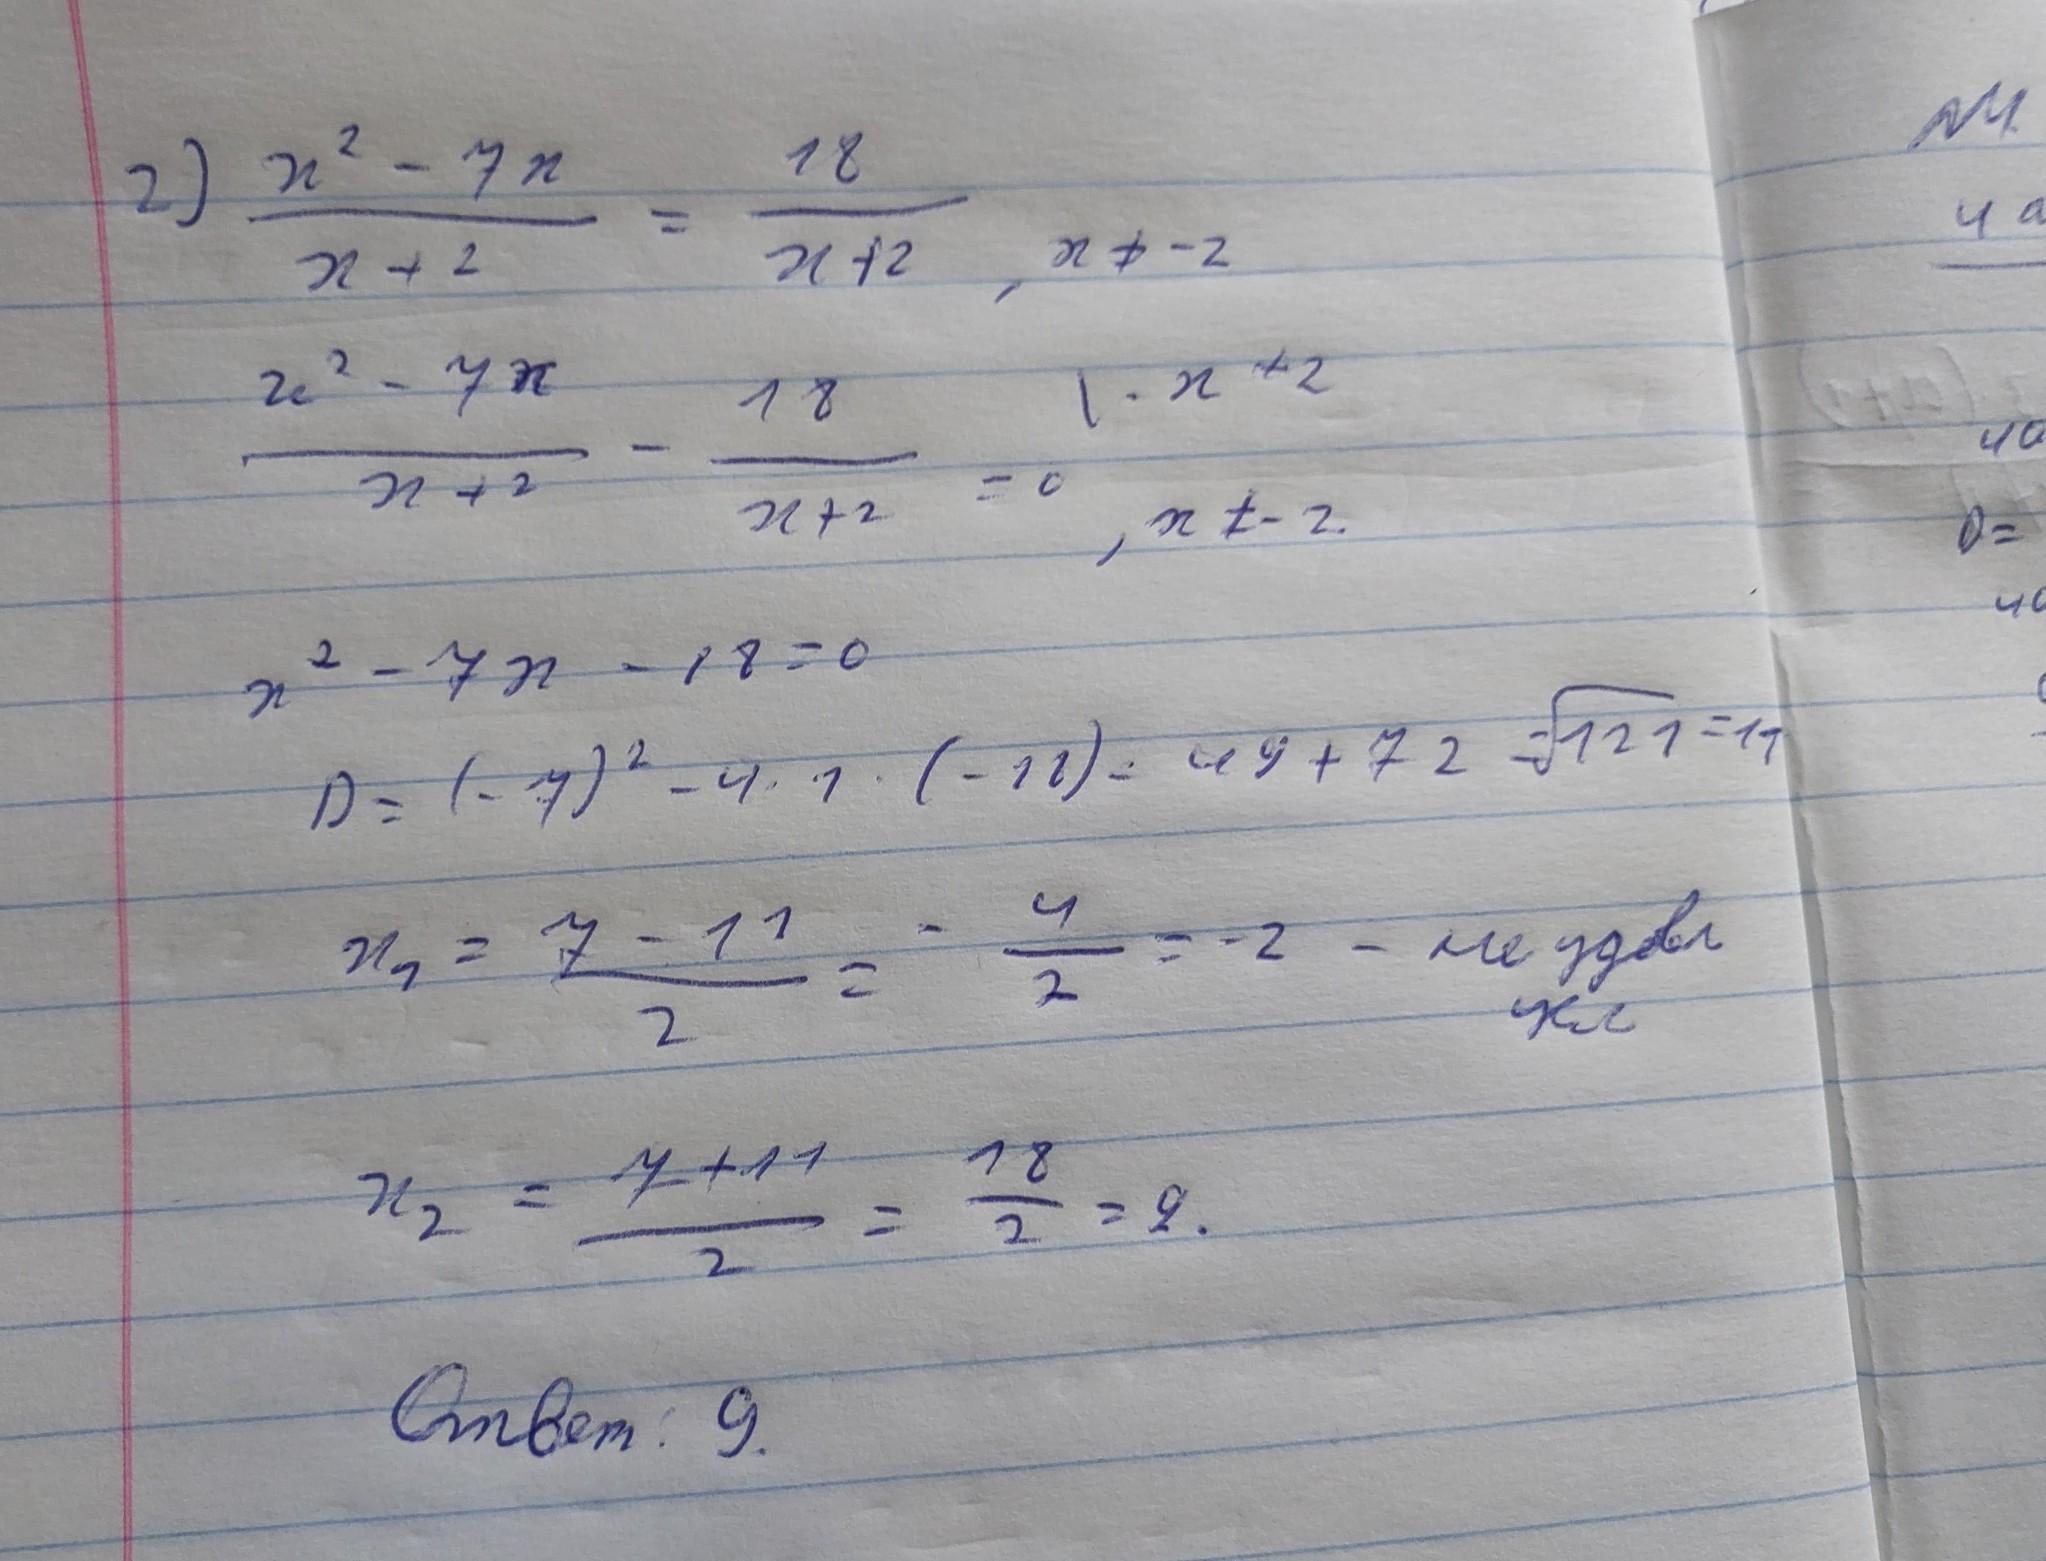 2) x² - 7x / x + 2 = 18 / x + 2 , x ≠ -2
x² - 7x / x + 2 - 18 / x + 2 = 0 | · x + 2 , x ≠ - 2.
x² - 7x - 18 = 0
D = (-7)² - 4 · 1 · (-18) = 49 + 72 = √121 = 11
x₁ = 7 - 11 / 2 = - 4 / 2 = -2 - не удовл
усл
x₂ = 7 + 11 / 2 = 18 / 2 = 9.
Ответ: 9.
4a
D =